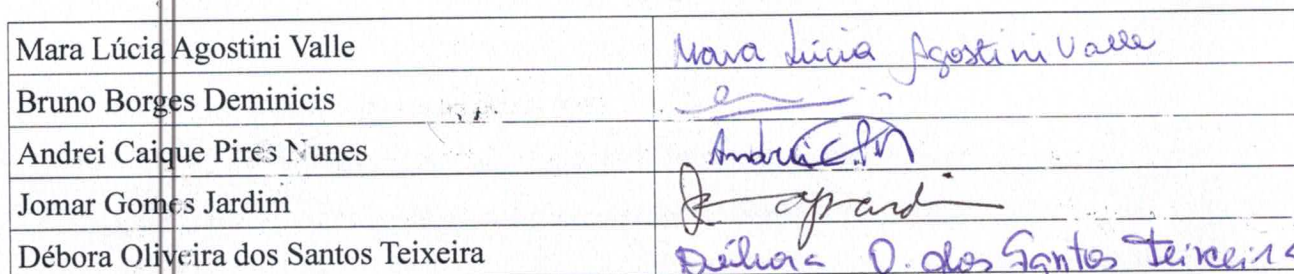 Mara Lúcia Agostini Valle Mara Lúcia Agostini Valle
Bruno Borges Deminicis
Andrei Caique Pires Nunes Andrei C.P.N
Jomar Gomes Jardim
Débora Oliveira dos Santos Teixeira Débora O. dos Santos Teixeira